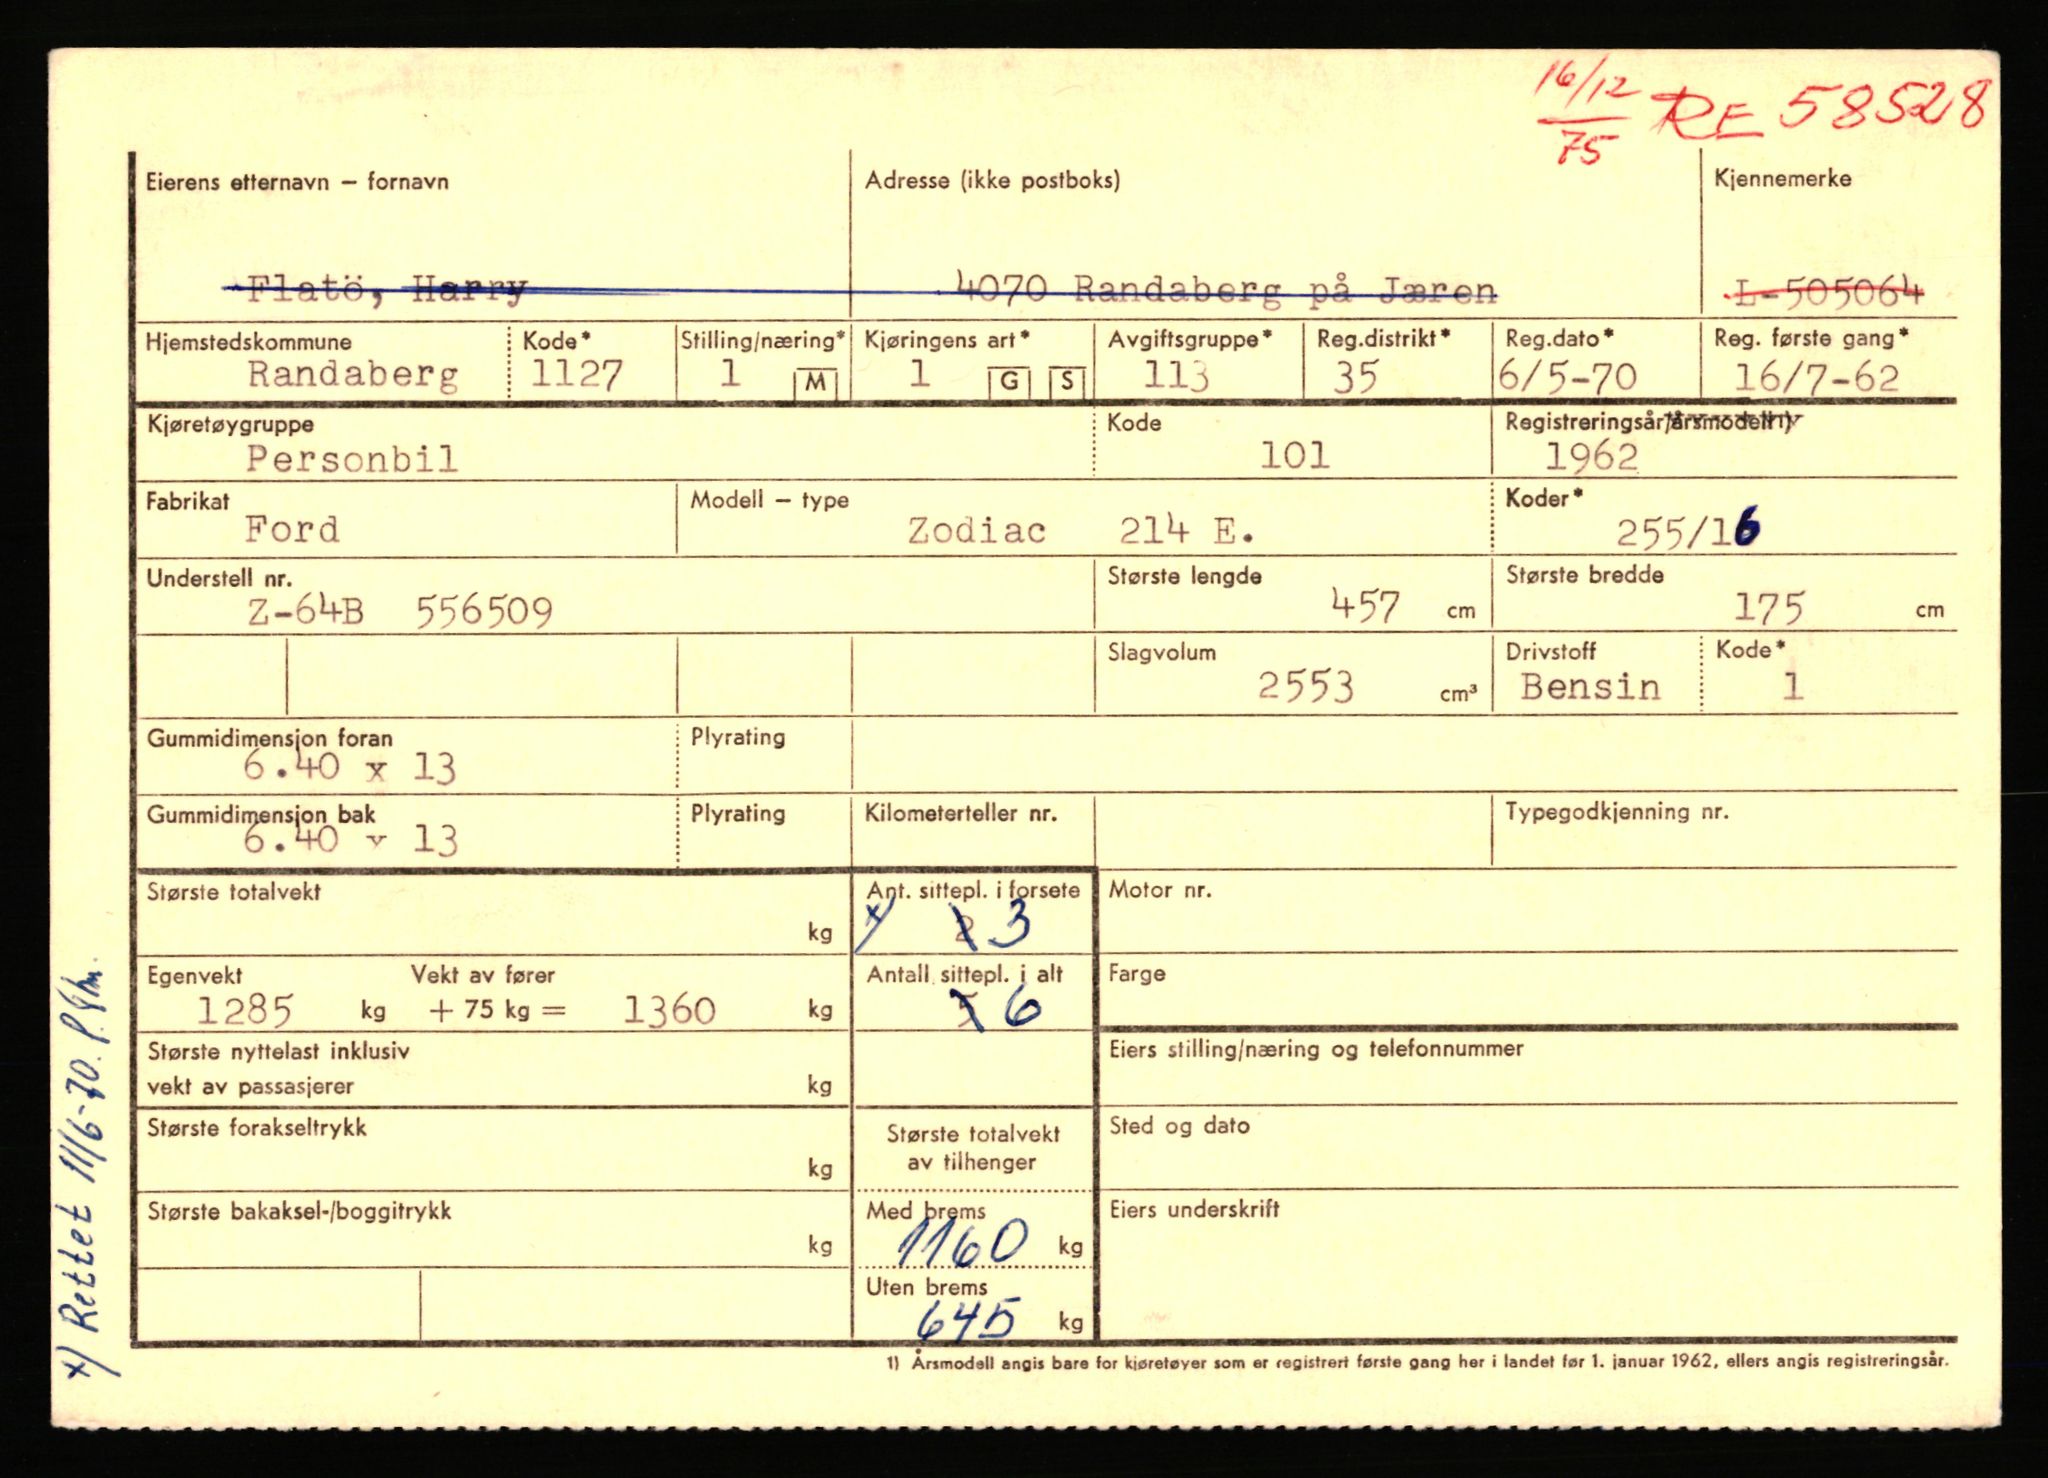 16/12
75 RE 58528
Eierens etternavn – fornavn Adresse (ikke postboks) Kjennemerke
Flatö, Harry 4070 Randaberg på Jæren L-505064
Hjemstedskommune Kode* Stilling/næring* Kjøringens art* Avgiftsgruppe* Reg.distrikt* Reg.dato* Reg. første gang*
Randaberg 1127 1 M 1 G S 113 35 6/5-70 16/7-62
Kjøretøygruppe Kode Registreringsår/årsmodell 1)
Personbil 101 1962
Fabrikat Modell – type Koder*
Ford Zodiac 214 E. 255/16
Understell nr. Største lengde Største bredde
Z-64B 556509 457 cm 175 cm
Slagvolum Drivstoff Kode*
2553 cm³ Bensin 1
Gummidimensjon foran Plyrating
6.40 x 13
Gummidimensjon bak Plyrating Kilometerteller nr. Typegodkjenning nr.
6.40 x 13
Største totalvekt Ant. sittepl. i forsete Motor nr.
kg x) 2 3
Egenvekt Vekt av fører Antall sittepl. i alt Farge
1285 kg + 75 kg = 1360 kg 5 6
Største nyttelast inklusiv Eiers stilling/næring og telefonnummer
vekt av passasjerer kg
Største forakseltrykk Største totalvekt Sted og dato
kg av tilhenger
Største bakaksel-/boggitrykk Med brems Eiers underskrift
kg 1160 kg
Uten brems
645 kg
1) Årsmodell angis bare for kjøretøyer som er registrert første gang her i landet før 1. januar 1962, ellers angis registreringsår.
x) Rettet 11/6-70.